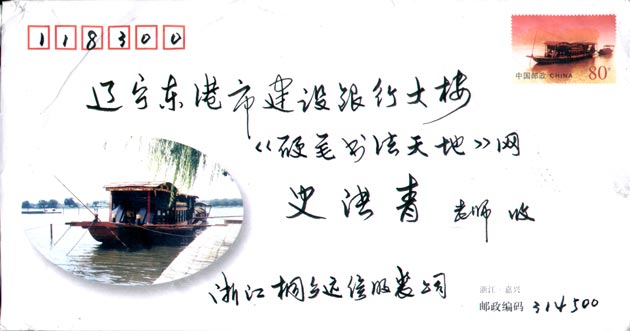 118300
中国邮政 CHINA 80分
辽宁东港市建设银行大楼
《硬笔书法天地》网
史洪青 老师 收
浙江桐乡运信服装公司
浙江·嘉兴
邮政编码 314500